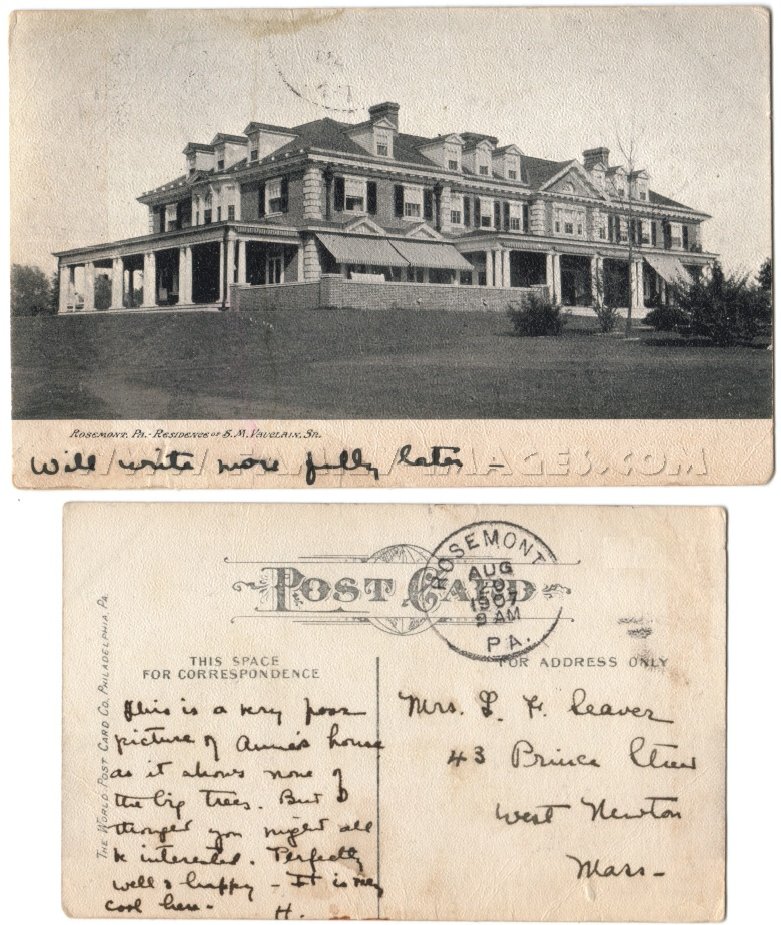 ROSEMONT, PA. - RESIDENCE OF S. M. VAUCLAIN, SR.
Will write more fully later -
IMAGES.COM
POST CARD
ROSEMONT
AUG
20
1907
9 AM
PA.
THIS SPACE
FOR CORRESPONDENCE
FOR ADDRESS ONLY
THE WORLD POST CARD CO. PHILADELPHIA, PA.
This is a very poor
picture of Annie's house
as it shows none of
the big trees. But I
thought you might all
be interested. Perfectly
well & happy - It is very
cool here -
H.
Mrs. L. F. Cleaver
43 Prince Street
West Newton
Mass -